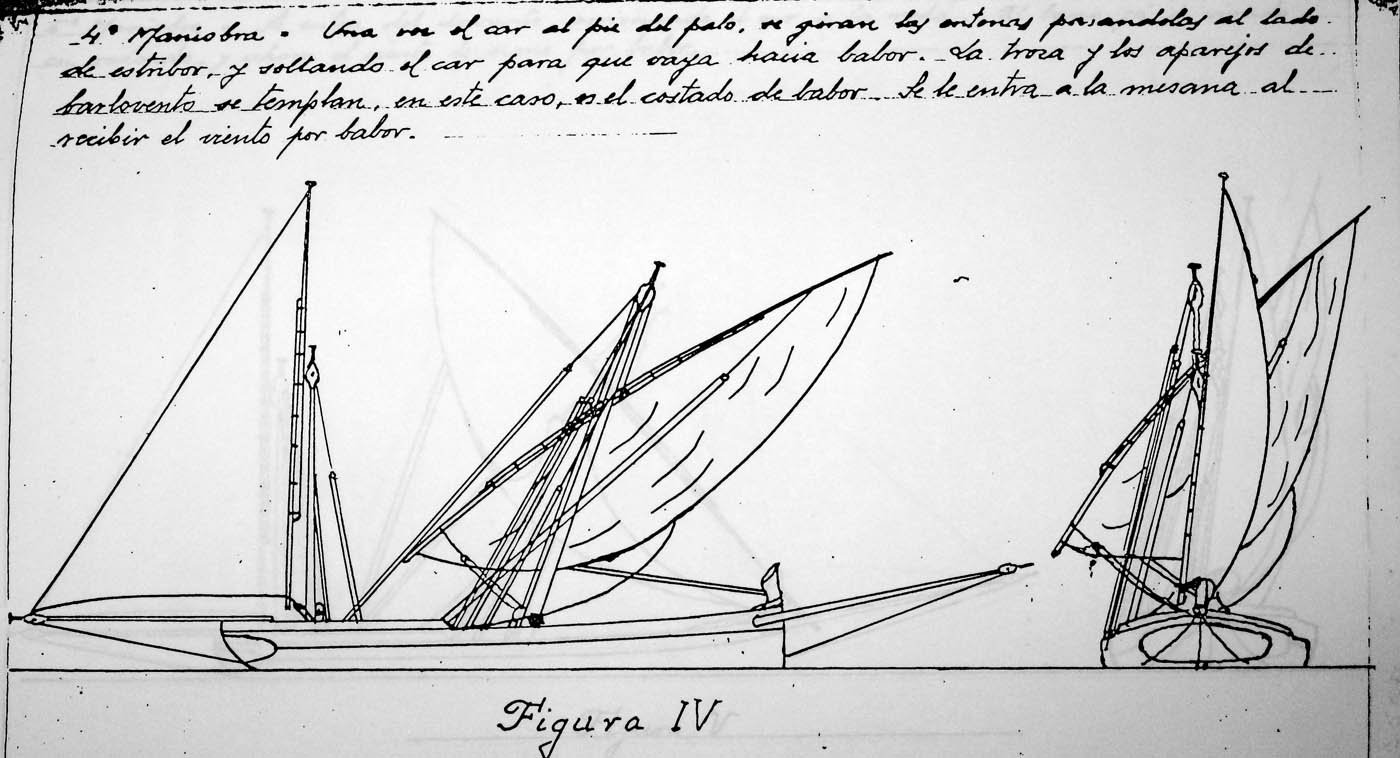 4º Maniobra. Una vez el car al pie del palo, se giran las entenas pasandolas al lado
de estribor, y soltando el car para que vaya hacia babor. La troza y los aparejos de
barlovento se templan, en este caso, es el costado de babor. Se le entra a la mesana al
recibir el viento por babor.
Figura IV